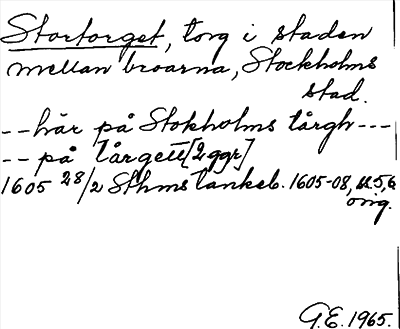 Stortorget, torg i staden
mellan broarna, Stockholms
stad.
--här på Stokholms tårgh---
--på Tårgett [2 ggr]
1605 28/2 Sthms tankeb. 1605-08, 5, 6
orig.
G.E. 1965.